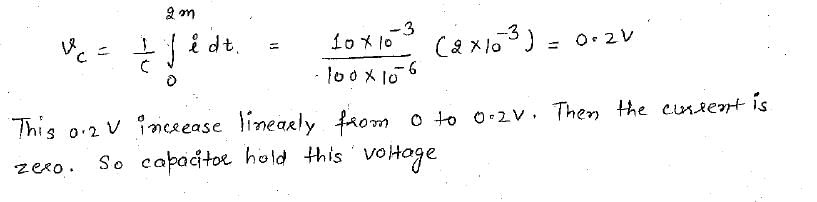 2m
V_c = 1/C ∫ i dt. = 10×10^-3 / 100×10^-6 (2×10^-3) = 0.2V
0
This 0.2 V increase linearly from 0 to 0.2V. Then the current is
zero. So capacitor hold this voltage